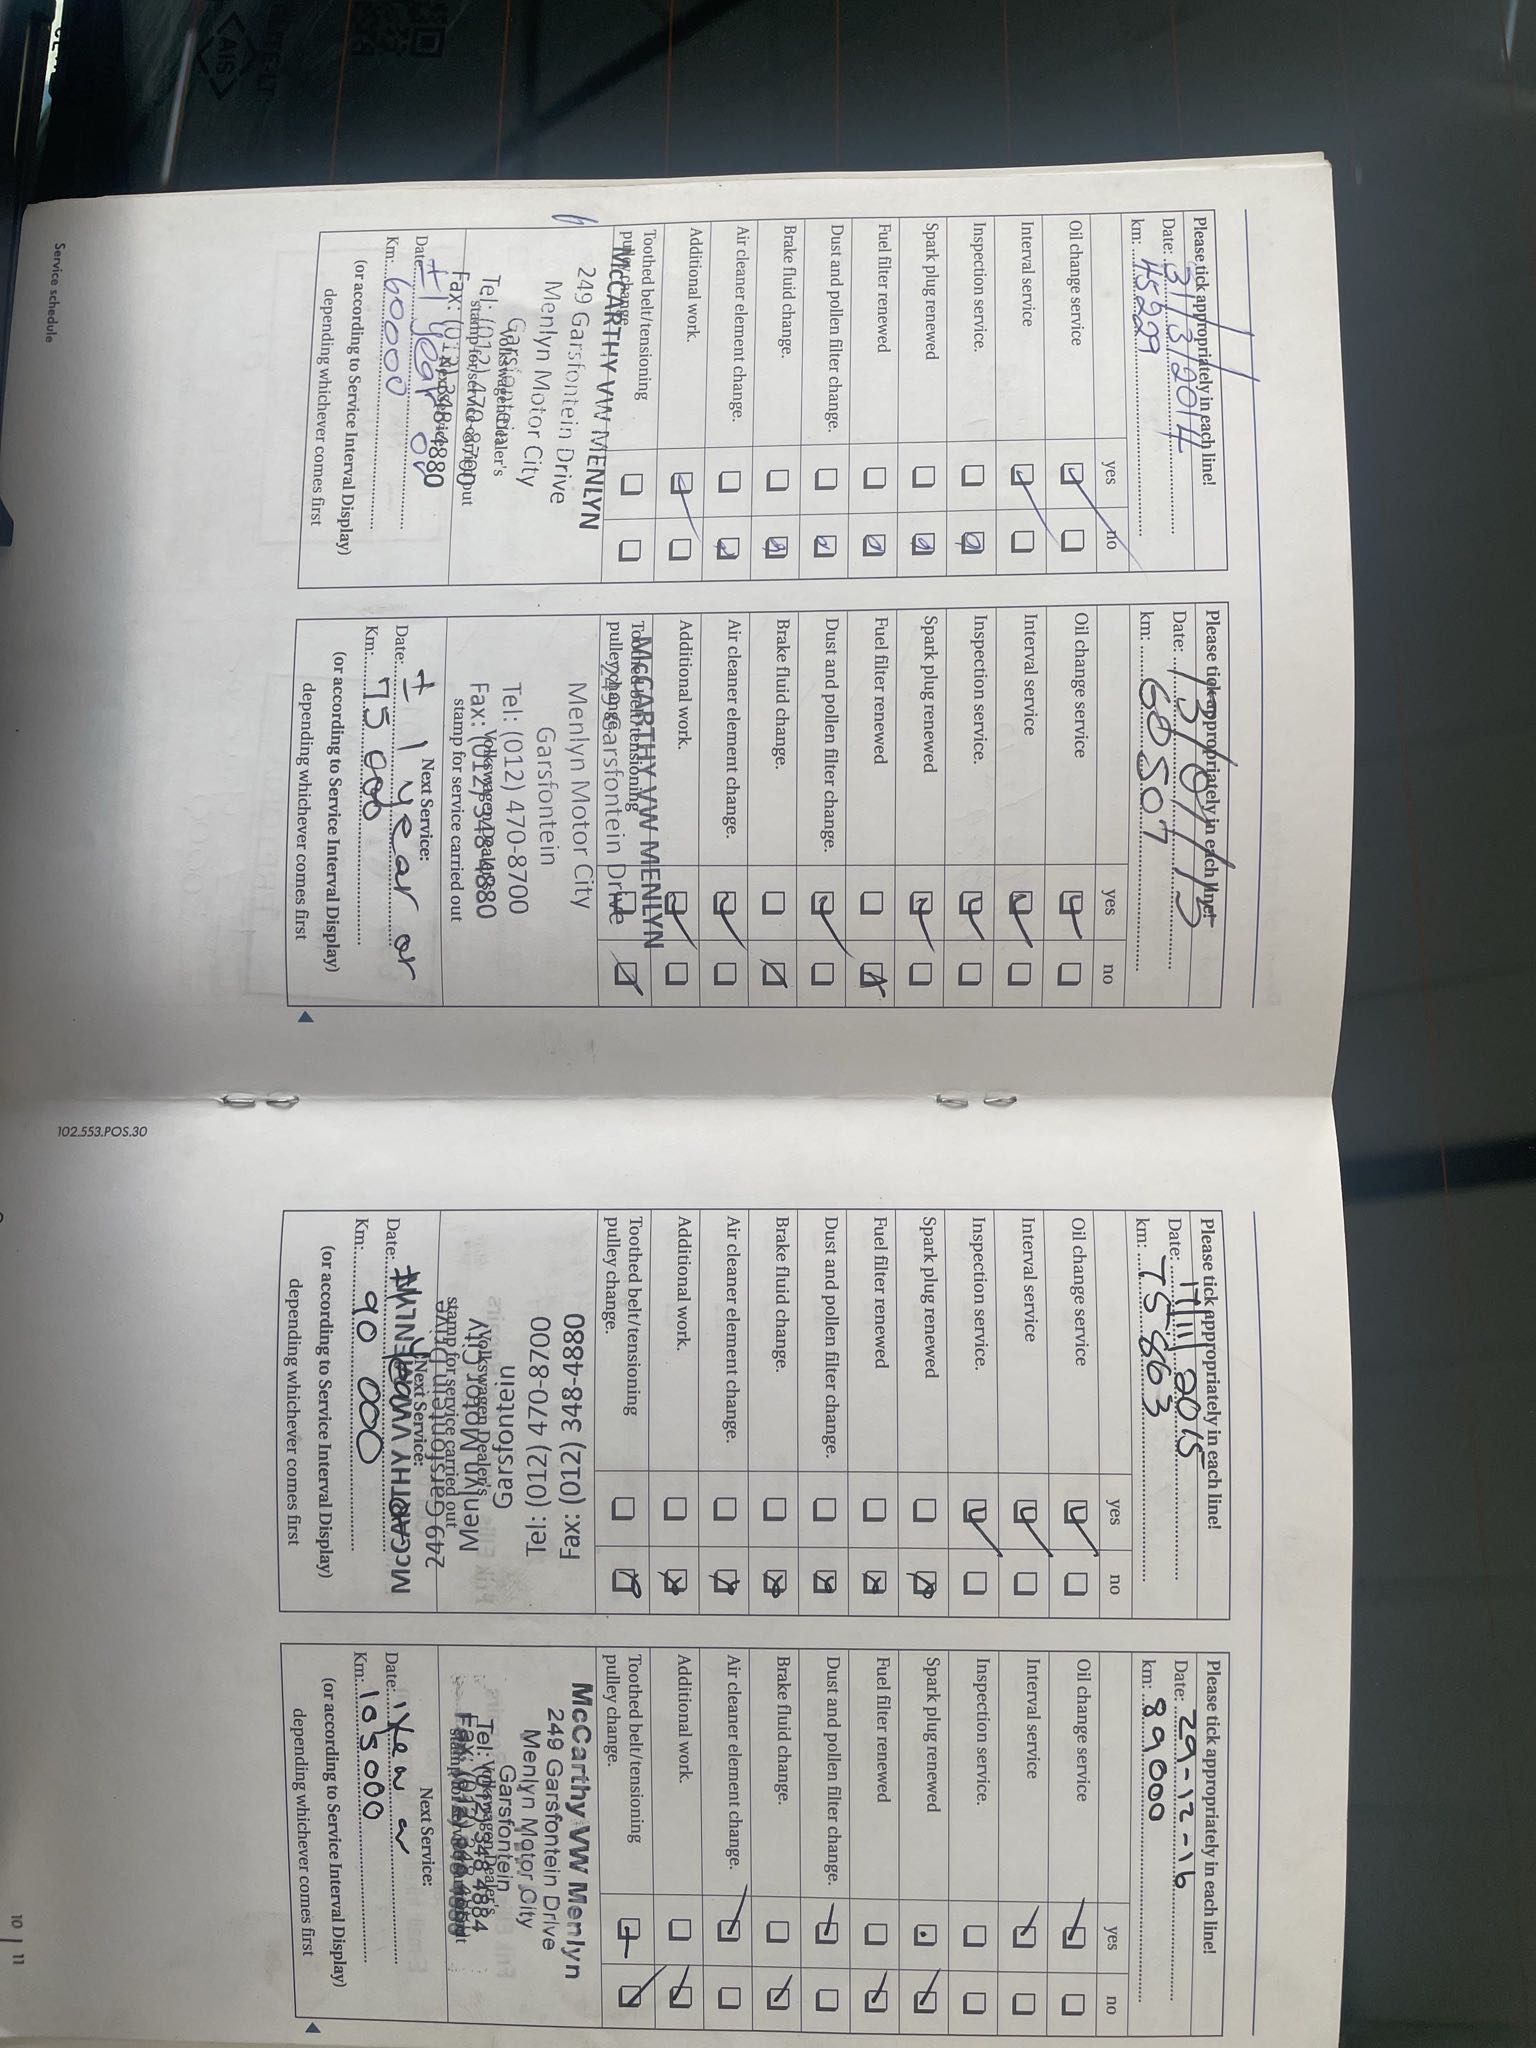 Please tick appropriately in each line!
Date: 31/3/2014
km: 45229
yes no
Oil change service
Interval service
Inspection service.
Spark plug renewed
Fuel filter renewed
Dust and pollen filter change.
Brake fluid change.
Air cleaner element change.
Additional work.
Toothed belt/tensioning
pulley change.
McCARTHY VW MENLYN
249 Garsfontein Drive
Menlyn Motor City
Garsfontein
Volkswagen Dealer's
Tel: (012) 470-8700
stamp for service carried out
Fax: (012) 348-4880
Next Service:
Date: ± 1 year or
Km: 60000
(or according to Service Interval Display)
depending whichever comes first
Please tick appropriately in each line!
Date:
km: 68507
yes no
Oil change service
Interval service
Inspection service.
Spark plug renewed
Fuel filter renewed
Dust and pollen filter change.
Brake fluid change.
Air cleaner element change.
Additional work.
McCARTHY VW MENLYN
Toothed belt/tensioning
pulley change.
249 Garsfontein Drive
Menlyn Motor City
Garsfontein
Tel: (012) 470-8700
Volkswagen Dealer's
Fax: (012) 348-4880
stamp for service carried out
Next Service:
Date: ± 1 year or
Km: 75 000
(or according to Service Interval Display)
depending whichever comes first
Service schedule
Please tick appropriately in each line!
Date: 17/11/2015
km: 75863
yes no
Oil change service
Interval service
Inspection service.
Spark plug renewed
Fuel filter renewed
Dust and pollen filter change.
Brake fluid change.
Air cleaner element change.
Additional work.
Toothed belt/tensioning
pulley change.
Fax: (012) 348-4880
Tel: (012) 470-8700
Garsfontein
Menlyn Motor City
Volkswagen Dealer's
stamp for service carried out
249 Garsfontein Drive
Next Service:
McCARTHY VW MENLYN
Date:
Km: 90 000
(or according to Service Interval Display)
depending whichever comes first
Please tick appropriately in each line!
Date: 29-12-16
km: 89000
yes no
Oil change service
Interval service
Inspection service.
Spark plug renewed
Fuel filter renewed
Dust and pollen filter change.
Brake fluid change.
Air cleaner element change.
Additional work.
Toothed belt/tensioning
pulley change.
McCarthy VW Menlyn
249 Garsfontein Drive
Menlyn Motor City
Garsfontein
Volkswagen Dealer's
Tel: (012) 348 4884
Next Service:
Date:
Km: 105000
(or according to Service Interval Display)
depending whichever comes first
102.553.POS.30
10 | 11
AIS